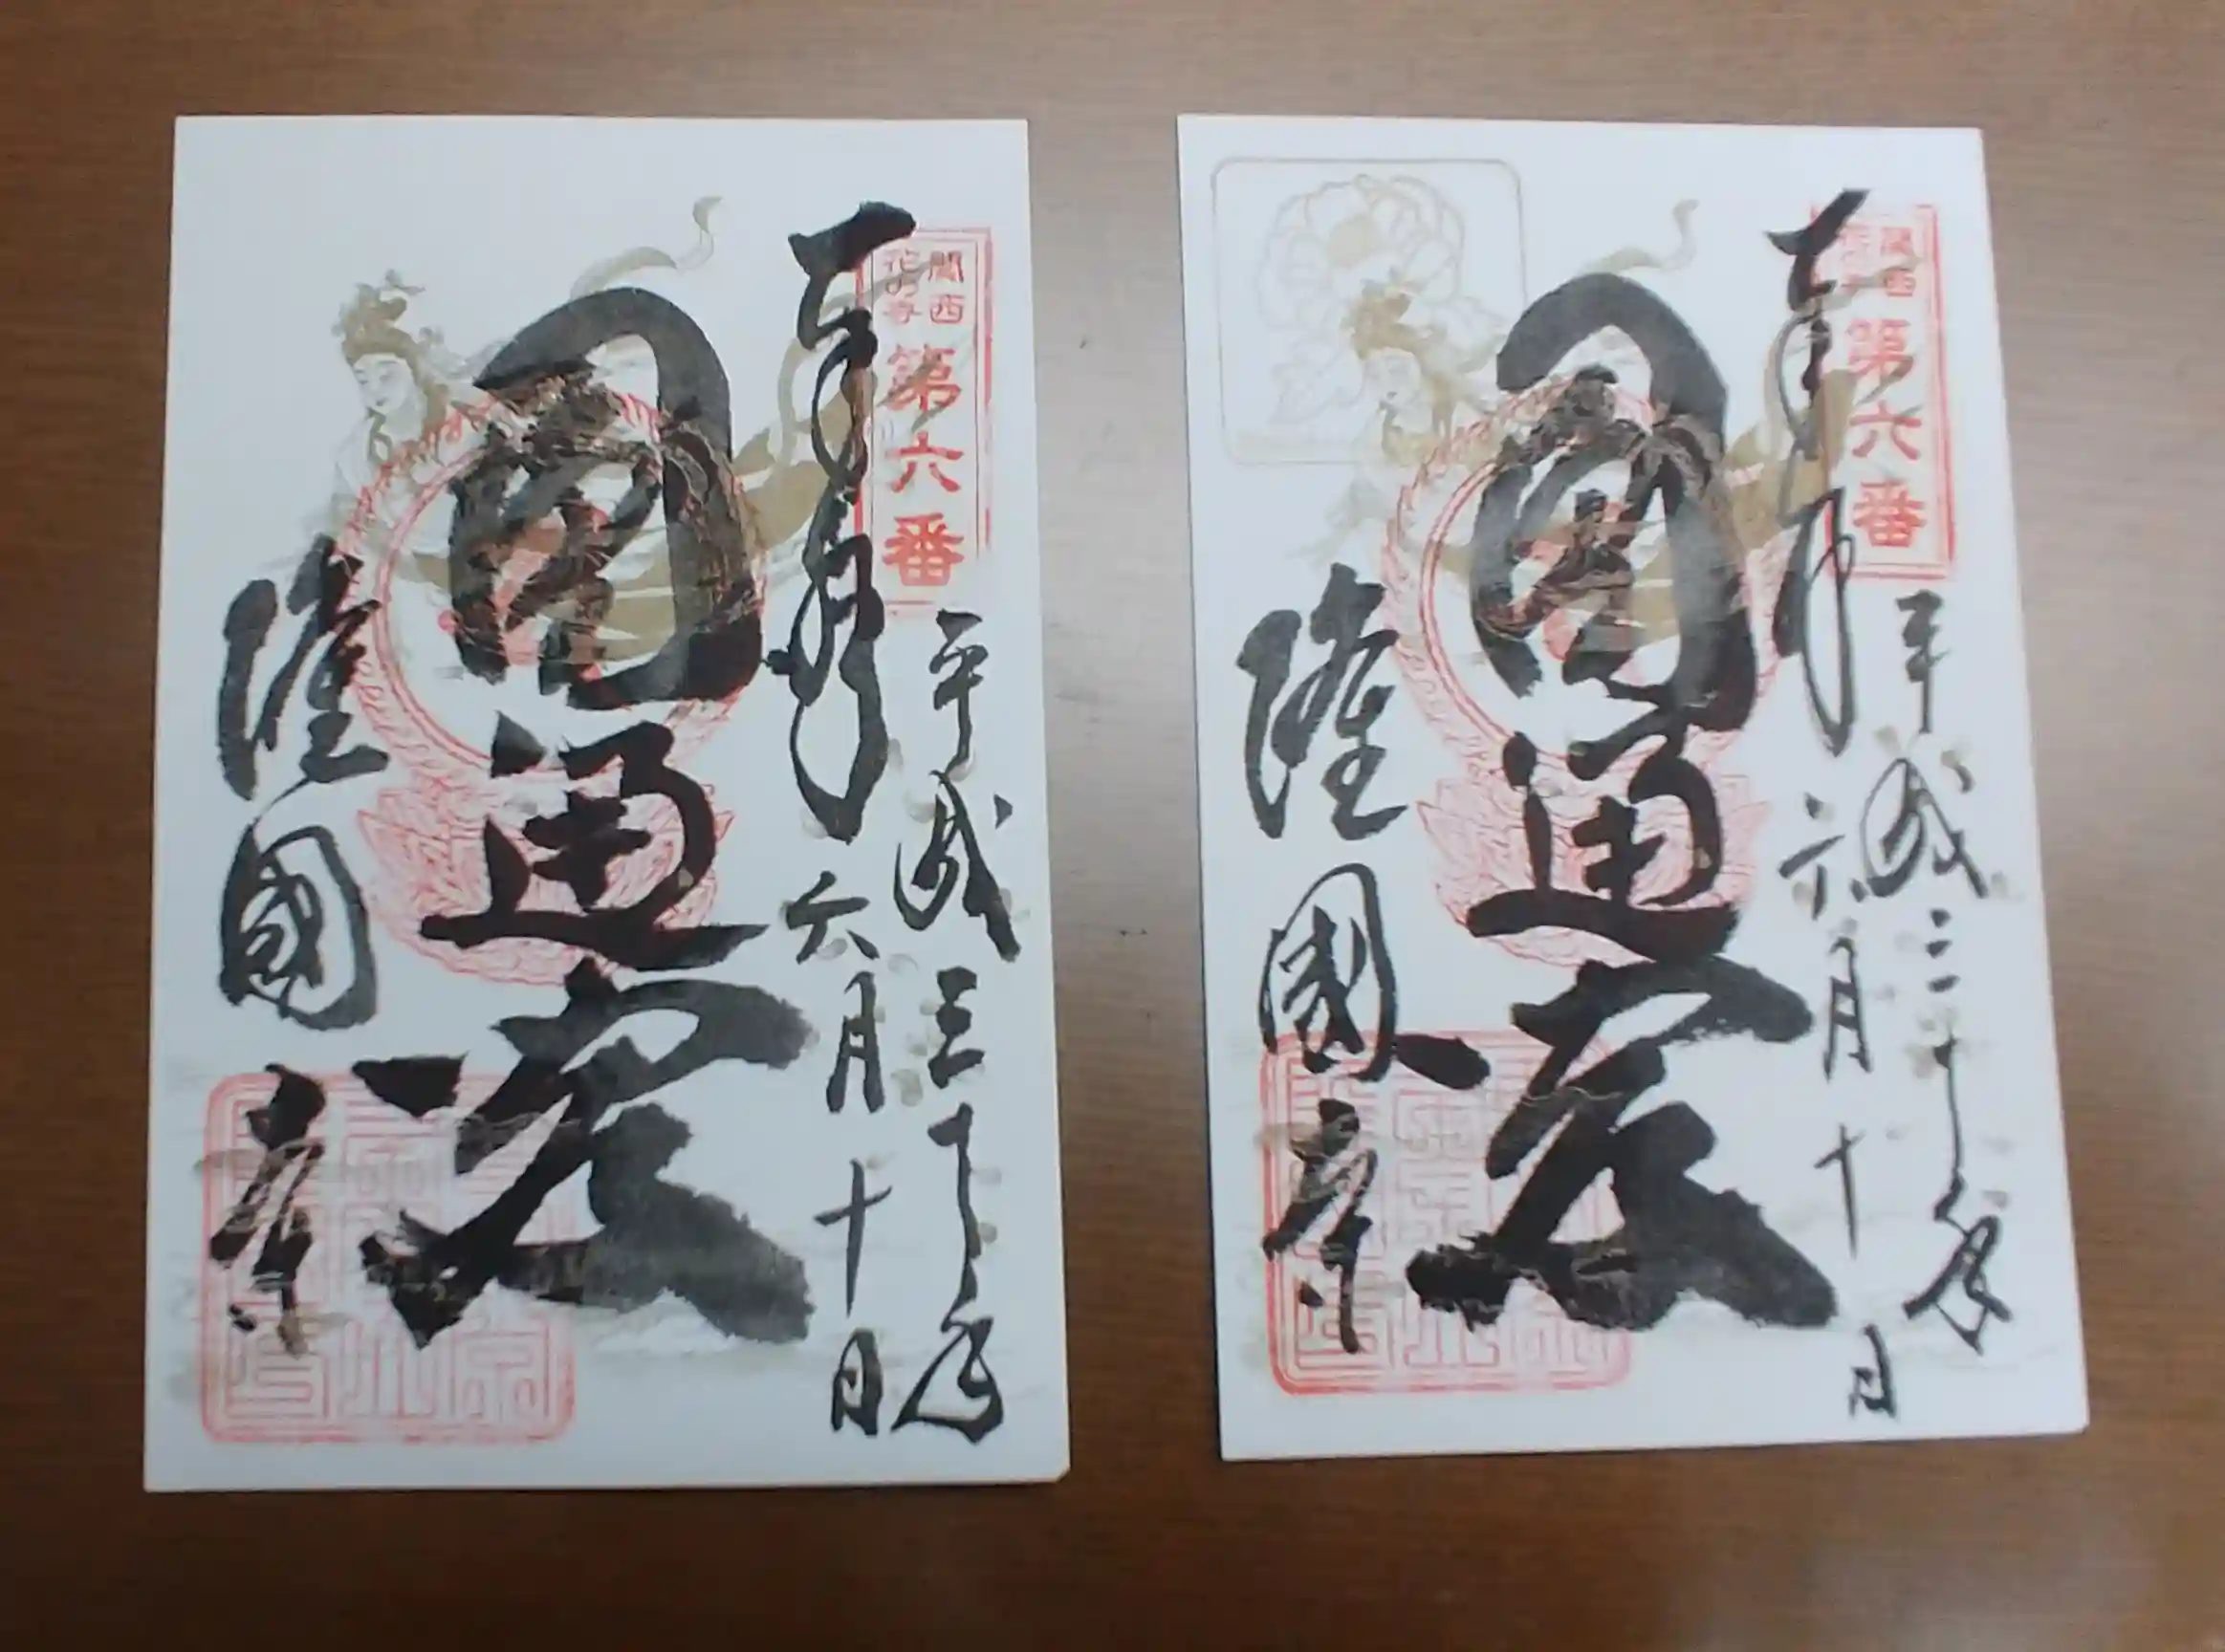 奉拝
関西
花の寺
第六番
平成三十年
六月十日
圓通殿
隆國寺
奉拝
関西
花の寺
第六番
平成三十年
六月十日
圓通殿
隆國寺